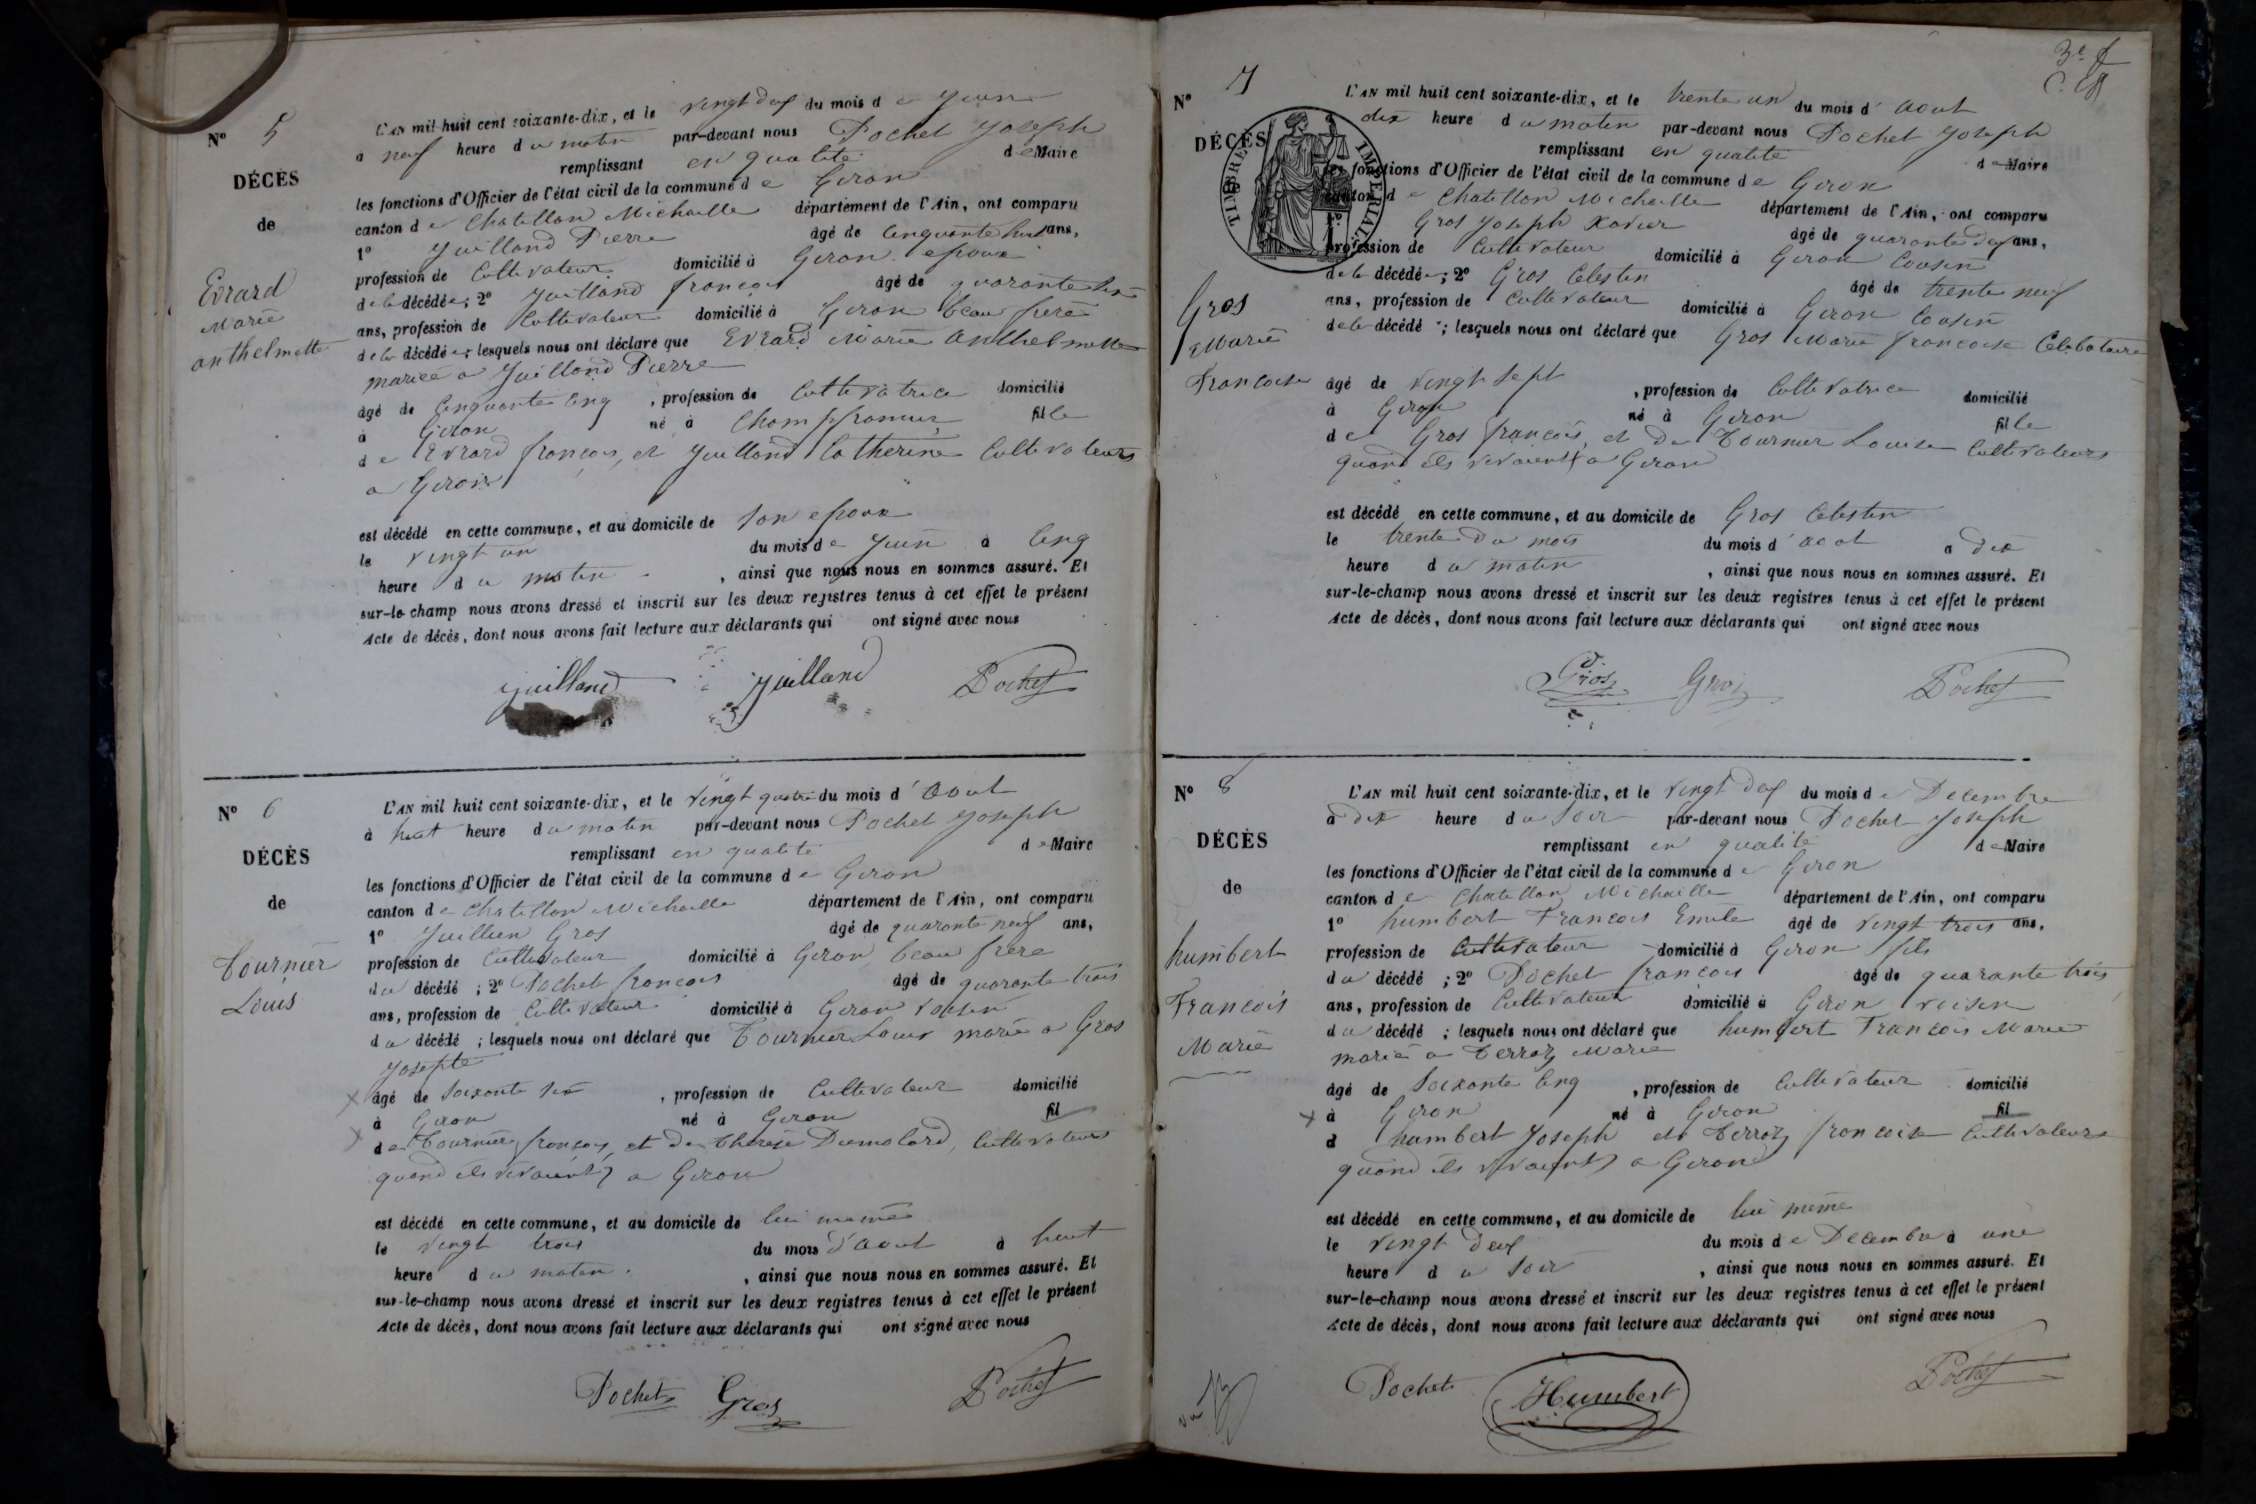 N° 5
DÉCÈS
de
Evrard
Marie
anthelmette
L'AN mil huit cent soixante-dix, et le vingt deux du mois de Juin
à neuf heure du matin par-devant nous Pochet Joseph
remplissant en qualité de Maire
les fonctions d'Officier de l'état civil de la commune de Giron
canton de Chatillon Michaille département de l'Ain, ont comparu
1° Juilland Pierre âgé de Cinquante huit ans,
profession de Cultivateur domicilié à Giron epoux
de la décédée; 2° Juilland francois âgé de quarante
ans, profession de Cultivateur domicilié à Giron beau frère
de la décédée; lesquels nous ont déclaré que Evrard Marie Anthelmette
mariée a Juilland Pierre
âgé de Cinquante Cinq, profession de Cultivatrice domicilié
à Giron né à Champfromier fille
de Evrard francois, et Juilland Catherine Cultivateurs
a Giron
est décédé en cette commune, et au domicile de son epoux
le vingt un du mois de Juin à Cinq
heure du matin, ainsi que nous nous en sommes assuré. Et
sur-le champ nous avons dressé et inscrit sur les deux registres tenus à cet effet le présent
Acte de décès, dont nous avons fait lecture aux déclarants qui ont signé avec nous
Juilland Juilland Pochet
N° 6
DÉCÈS
de
Tournier
Louis
L'AN mil huit cent soixante-dix, et le vingt quatre du mois d'Aout
à huit heure du matin par-devant nous Pochet Joseph
remplissant en qualité de Maire
les fonctions d'Officier de l'état civil de la commune de Giron
canton de Chatillon Michaille département de l'Ain, ont comparu
1° Juillien Gros âgé de quarante neuf ans,
profession de Cultivateur domicilié à Giron beau frère
du décédé; 2° Pochet francois âgé de quarante trois
ans, profession de Cultivateur domicilié à Giron voisin
du décédé; lesquels nous ont déclaré que Tournier Louis marié a Gros
Josepte
âgé de Soixante six, profession de Cultivateur domicilié
à Giron né à Giron fil
de Tournier francois, et de Thérèse Dumolard, Cultivateurs
quand ils vivaient a Giron
est décédé en cette commune, et au domicile de lui meme
le vingt trois du mois d'Aout à huit
heure du matin, ainsi que nous nous en sommes assuré. Et
sur-le-champ nous avons dressé et inscrit sur les deux registres tenus à cet effet le présent
Acte de décès, dont nous avons fait lecture aux déclarants qui ont signé avec nous
Pochet Gros Pochet
N° 7
DÉCÈS
TIMBRE IMPERIAL
Gros
Marie
Francoise
L'AN mil huit cent soixante-dix, et le trente un du mois d'Aout
dix heure du matin par-devant nous Pochet Joseph
remplissant en qualité de Maire
les fonctions d'Officier de l'état civil de la commune de Giron
canton de Chatillon Michaille département de l'Ain, ont comparu
1° Gros Joseph Xavier âgé de quarante deux ans,
profession de Cultivateur domicilié à Giron Cousin
de la décédée; 2° Gros Celestin âgé de trente neuf
ans, profession de Cultivateur domicilié à Giron Cousin
de la décédé; lesquels nous ont déclaré que Gros Marie francoise Celibataire
âgé de vingt sept, profession de Cultivatrice domicilié
à Giron né à Giron fille
de Gros francois, et de Tournier Louise Cultivateurs
quand ils vivaient a Giron
est décédé en cette commune, et au domicile de Gros Celestin
le trente du mois du mois d'Aout a dix
heure du matin, ainsi que nous nous en sommes assuré. Et
sur-le-champ nous avons dressé et inscrit sur les deux registres tenus à cet effet le présent
Acte de décès, dont nous avons fait lecture aux déclarants qui ont signé avec nous
Gros Gros Pochet
N° 8
DÉCÈS
de
humbert
Francois
Marie
L'AN mil huit cent soixante-dix, et le vingt deux du mois de Decembre
à dix heure du soir par-devant nous Pochet Joseph
remplissant en qualité de Maire
les fonctions d'Officier de l'état civil de la commune de Giron
canton de Chatillon Michaille département de l'Ain, ont comparu
1° humbert Francois Emile âgé de vingt trois ans,
profession de Cultivateur domicilié à Giron fils
du décédé; 2° Pochet francois âgé de quarante trois
ans, profession de Cultivateur domicilié à Giron voisin
du décédé; lesquels nous ont déclaré que humbert Francois Marie
marié a Terroz Marie
âgé de Soixante Cinq, profession de Cultivateur domicilié
à Giron né à Giron fil
d humbert Joseph et Terroz francoise Cultivateurs
quand ils vivaient a Giron
est décédé en cette commune, et au domicile de lui même
le vingt deux du mois de Decembre à une
heure du soir, ainsi que nous nous en sommes assuré. Et
sur-le-champ nous avons dressé et inscrit sur les deux registres tenus à cet effet le présent
Acte de décès, dont nous avons fait lecture aux déclarants qui ont signé avec nous
Pochet Humbert Pochet